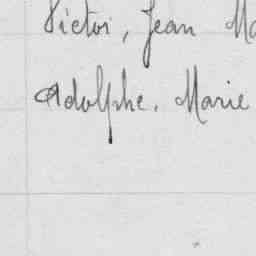 Victor, Jean Ma
Adolphe. Marie